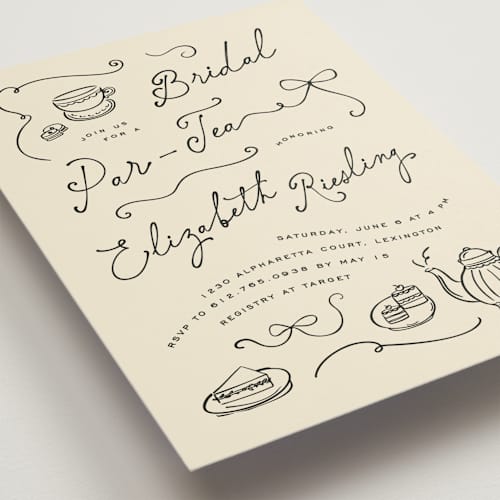 JOIN US
FOR A
Bridal
Par-Tea
HONORING
Elizabeth Riesling
SATURDAY, JUNE 6 AT 4 PM
1230 ALPHARETTA COURT, LEXINGTON
RSVP TO 612.765.0938 BY MAY 15
REGISTRY AT TARGET